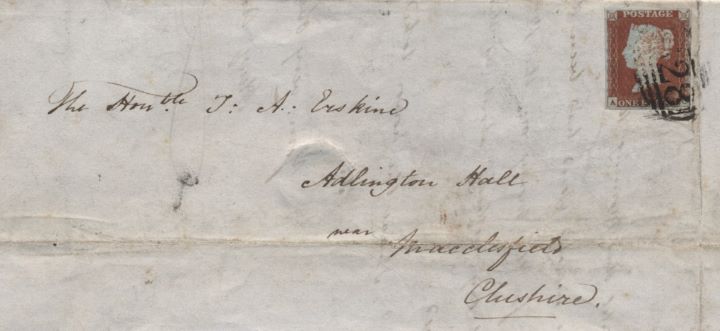 POSTAGE
A ONE
28
The Honble. T: A: Erskine
Adlington Hall
near Macclesfield
Cheshire.